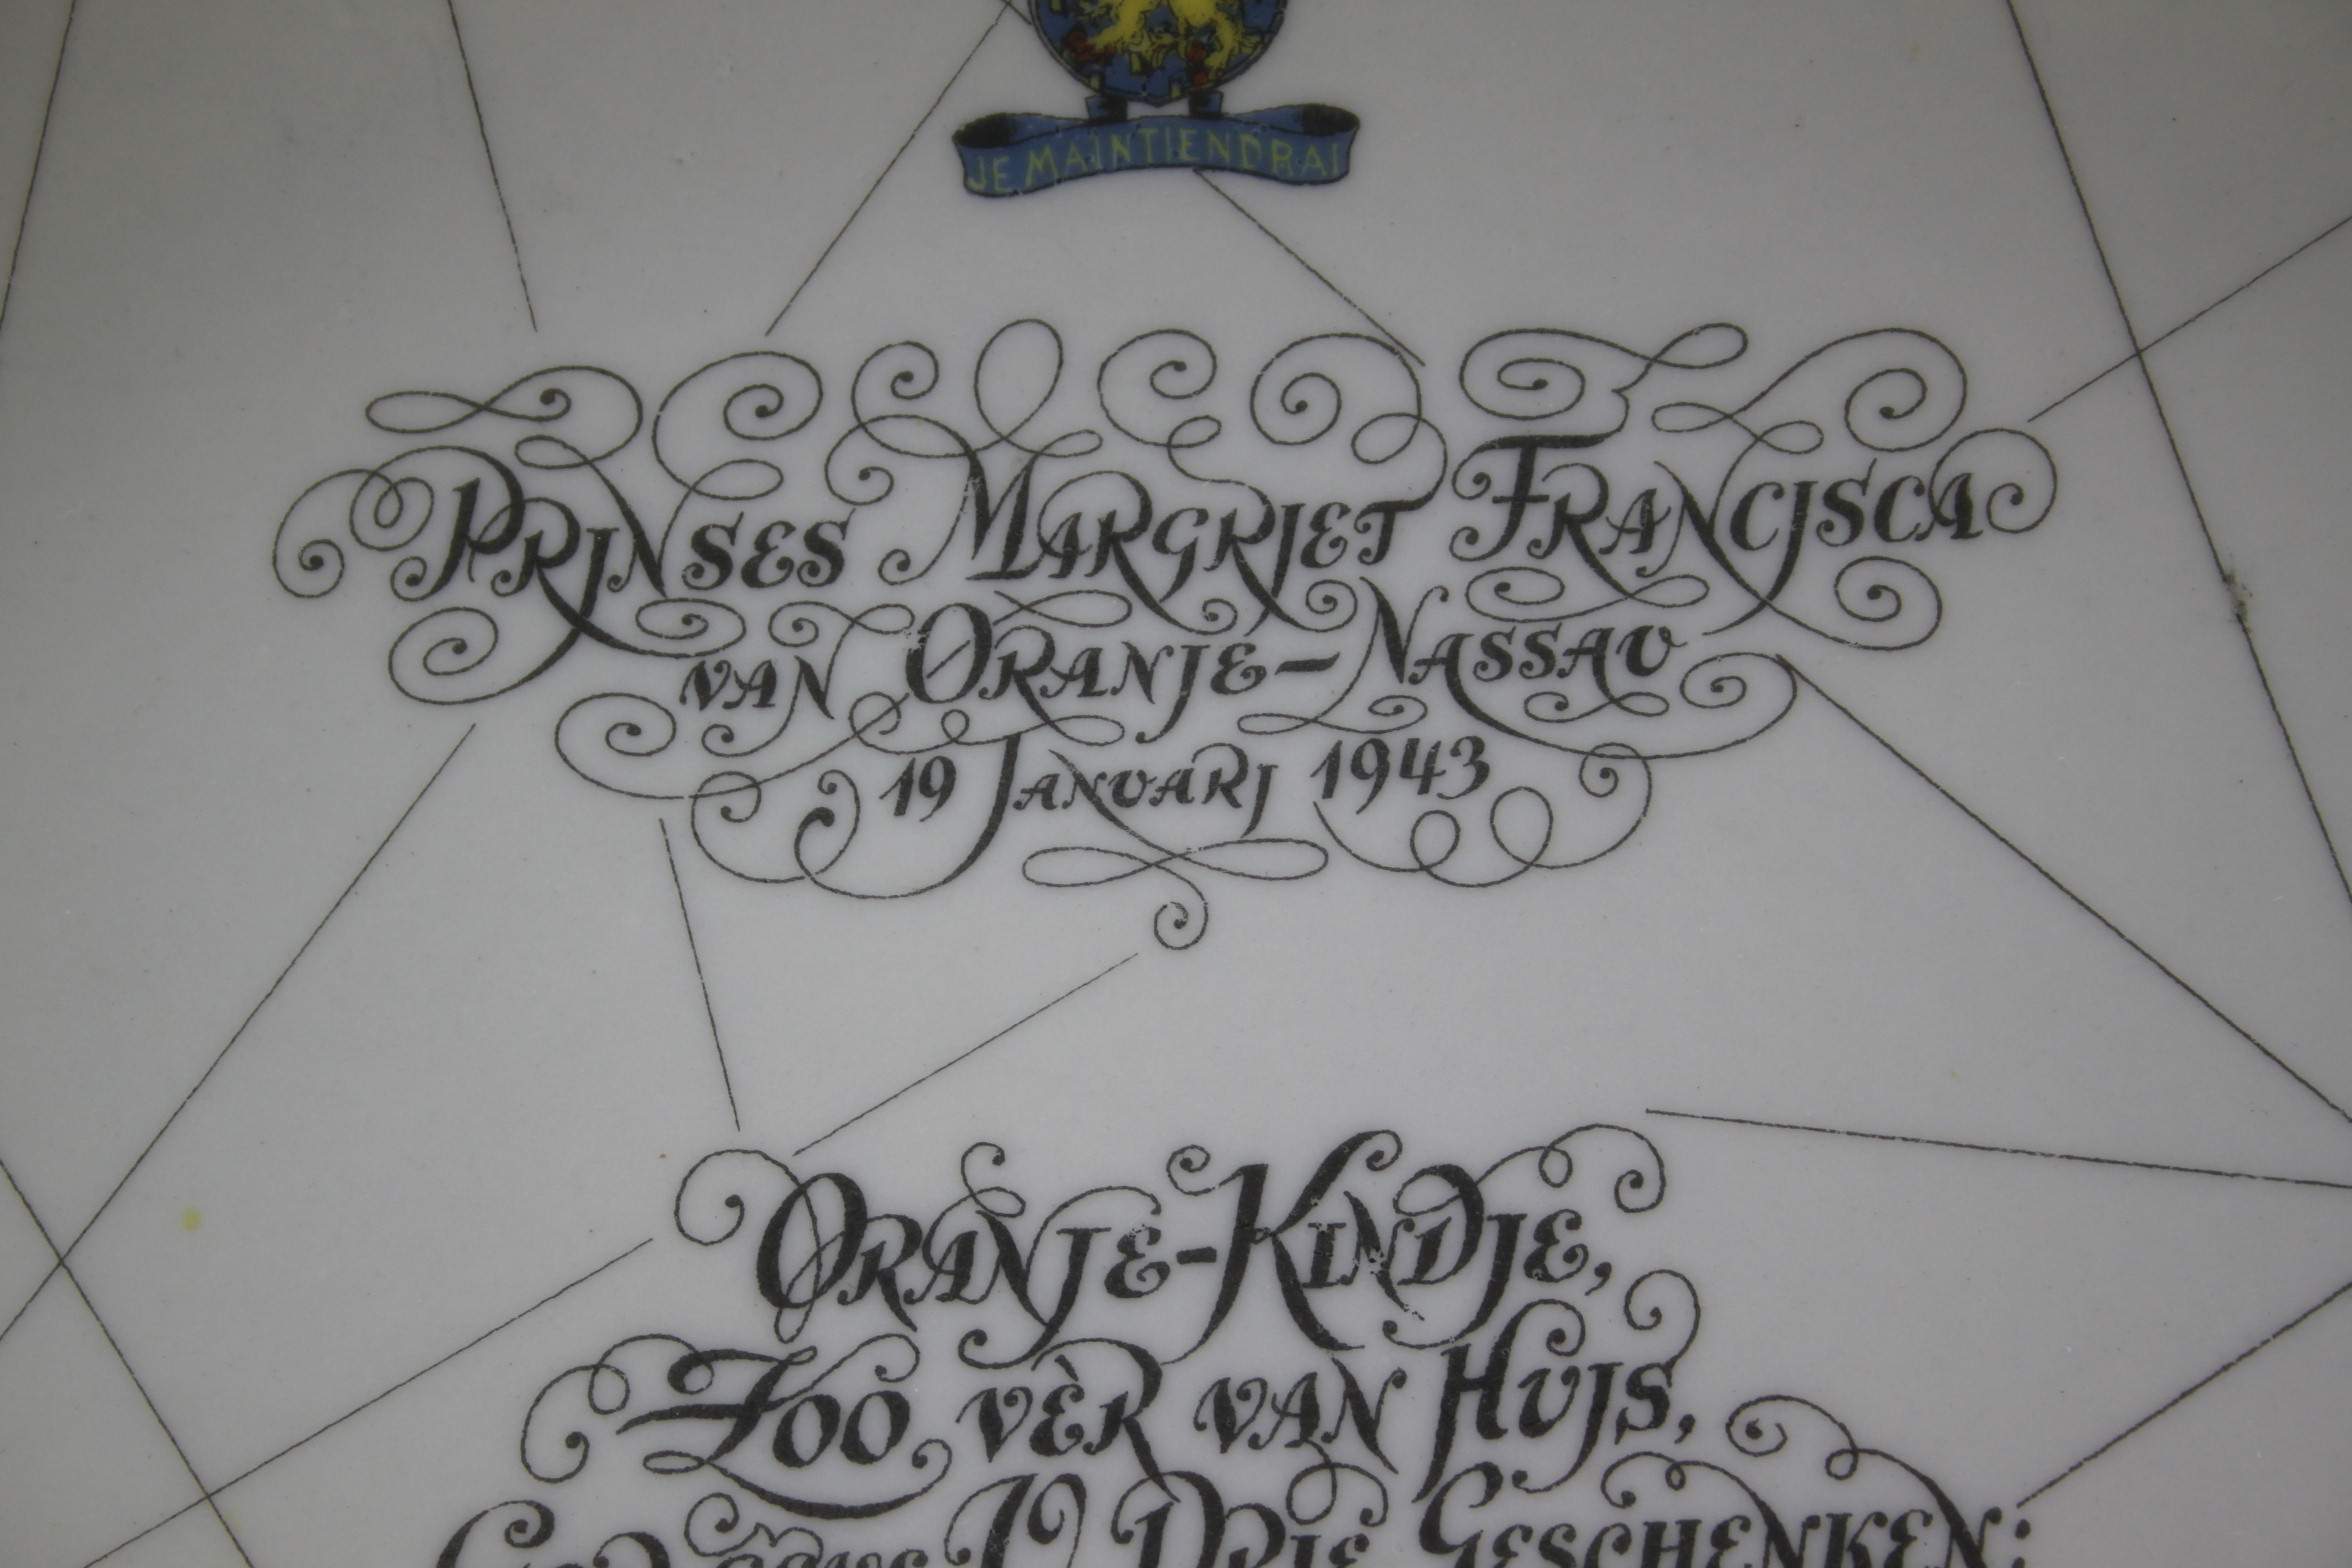 JE MAINTIENDRAI
PRINSES MARGRIET FRANCISCA
VAN ORANJE-NASSAU
19 JANUARI 1943
ORANJE-KINDJE,
ZOO VÈR VAN HUIS,
GOD U DRIE GESCHENKEN: